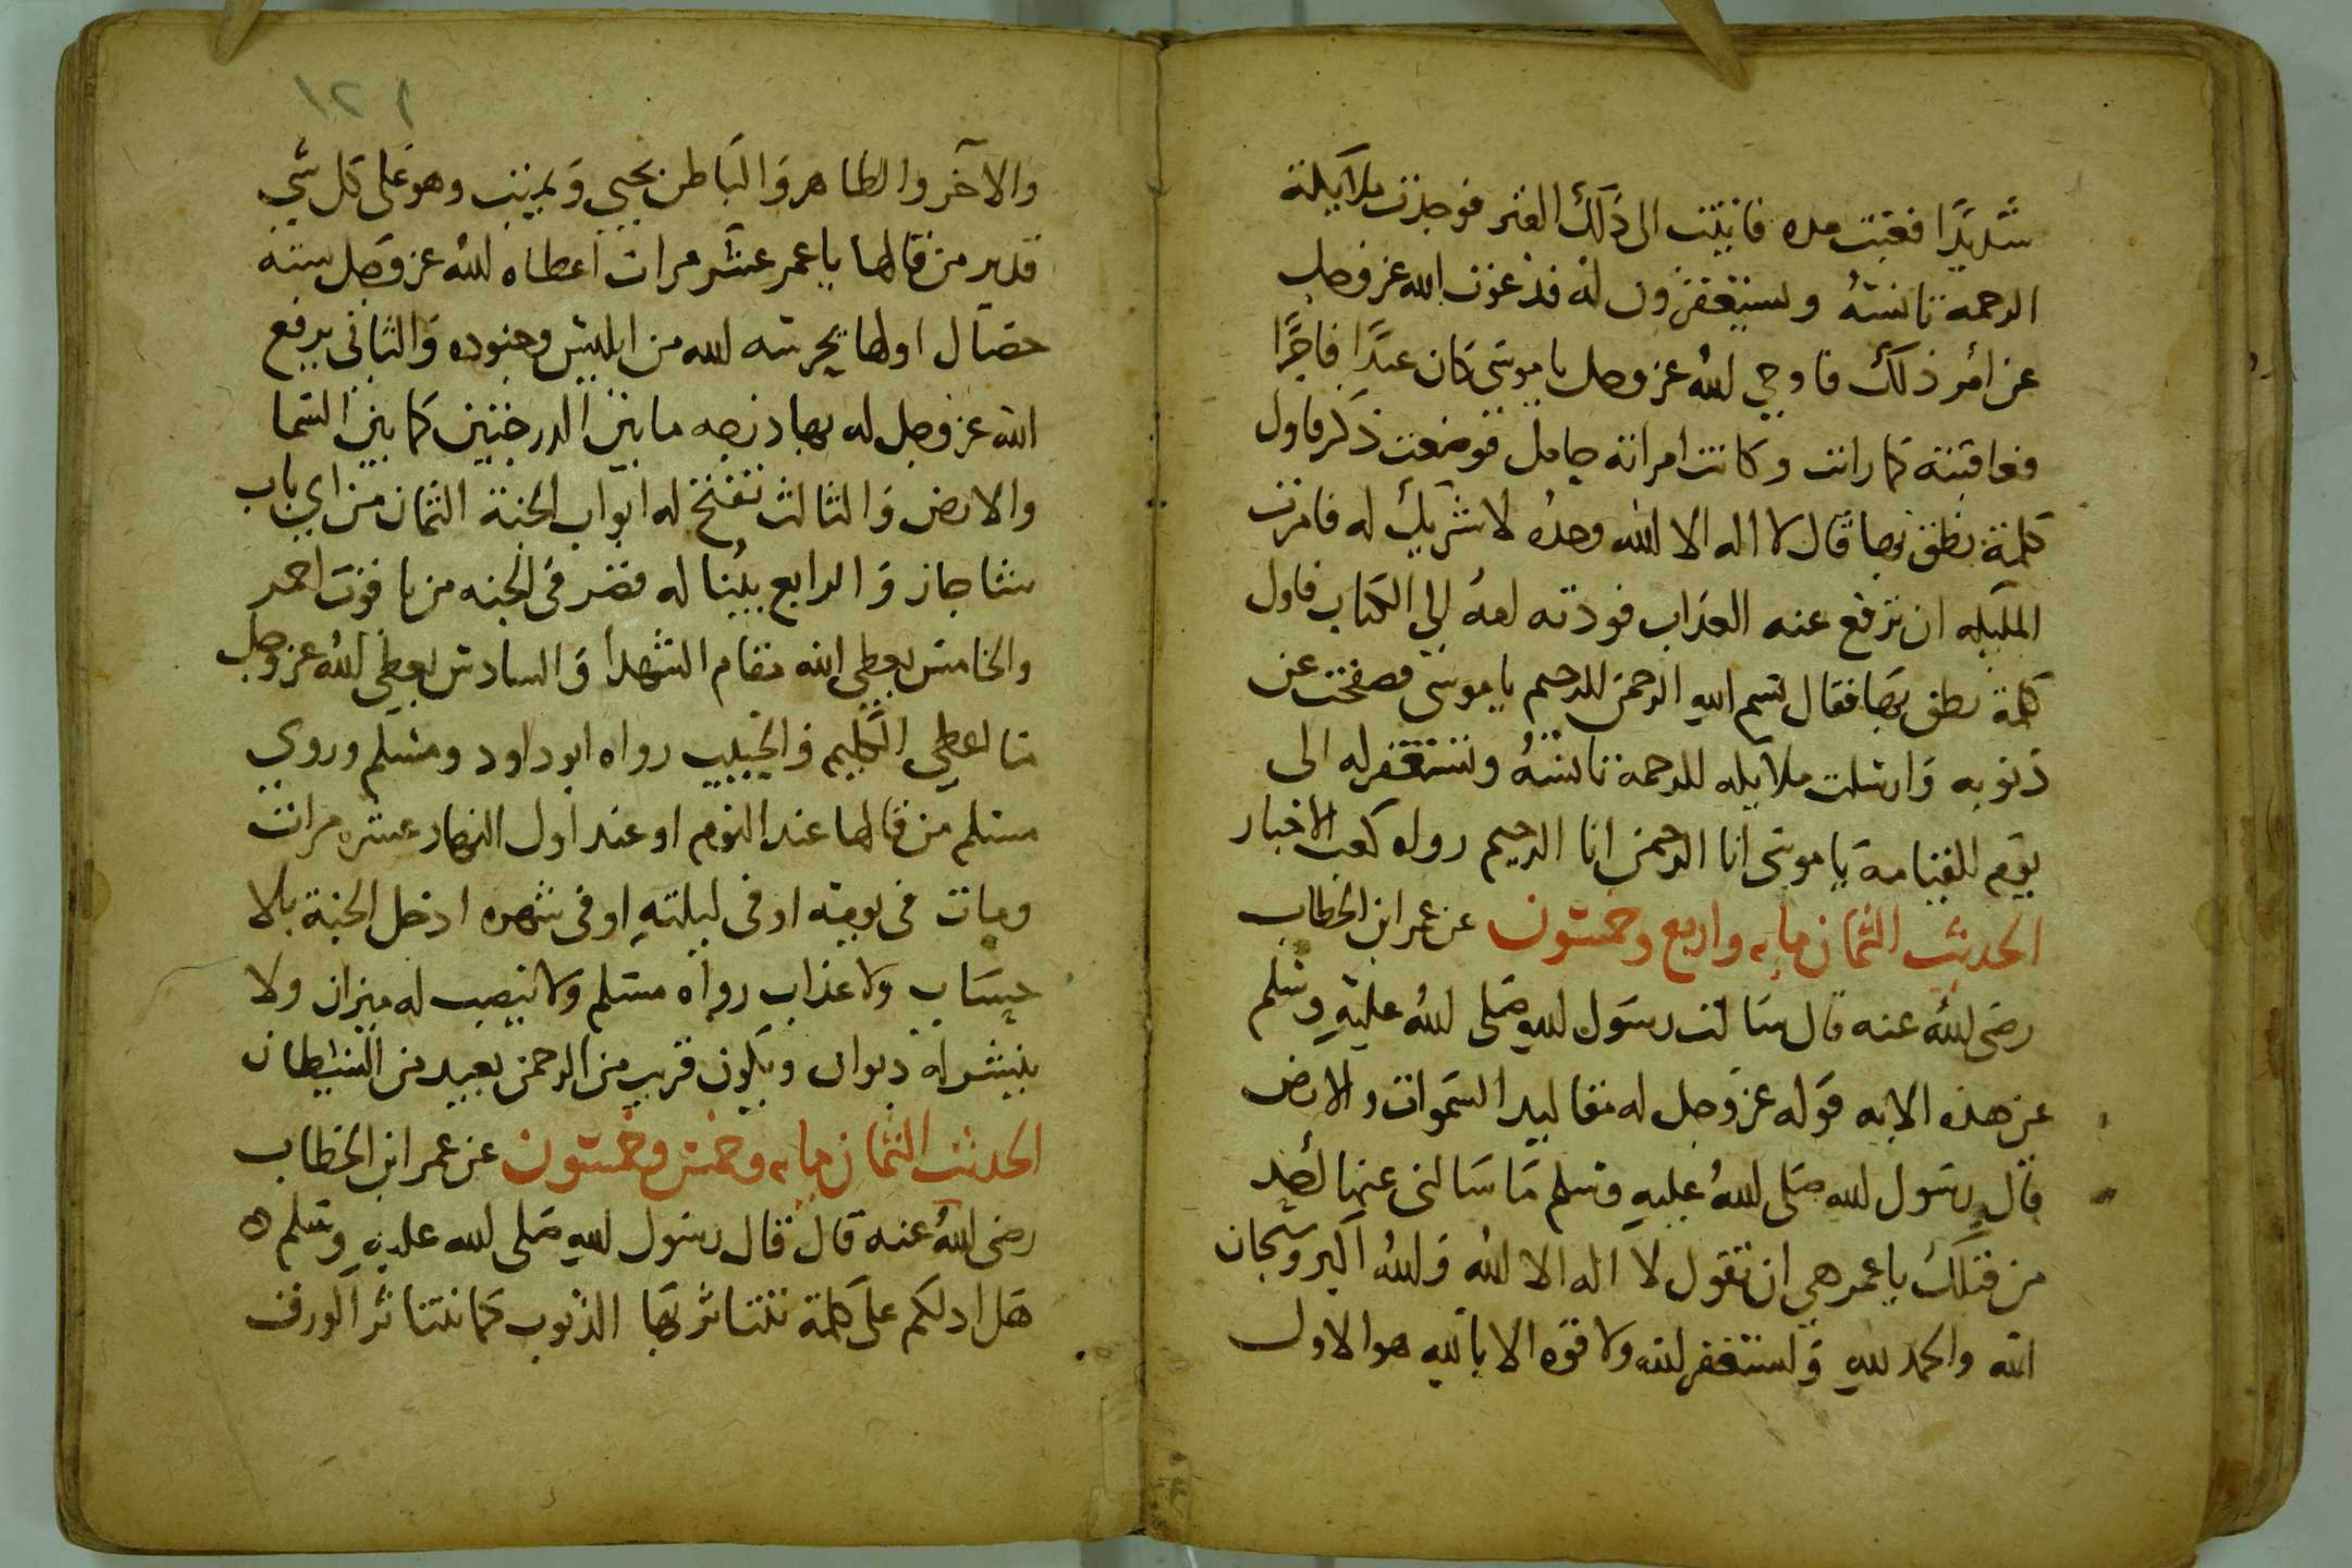 شديدا فغبت مده فاتيت الى ذلك القبر فوجدت ملايكة
الرحمه تانسه ويستغفرون له فدعوت الله عز وجل
عن امر ذلك فاوحي الله عز وجل يا موسى كان عبدا فاجرا
فعاقبته كما رايت وكانت امراته حامل فوضعت ذكر فاول
كلمة نطق بها قال لا اله الا الله وحده لا شريك له فامرت
المليكه ان ترفع عنه العذاب فودته امه الي الكتاب فاول
كلمة نطق بها فقال بسم الله الرحمن الرحيم يا موسى فصفحت عن
ذنوبه وارسلت ملايكه الرحمة تانسه وتستغفر له الى
يوم القيامة يا موسى انا الرحمن انا الرحيم رواه كعب الاخبار
الحديث الثمان مايه واربع وخمسون عن عمر ابن الخطاب
رضى الله عنه قال سالت رسول الله صلى الله عليه وسلم
عن هذه الايه قوله عز وجل له مقاليد السموات والارض
قال رسول الله صلى الله عليه وسلم ما سالنى عنها احد
من قبلك يا عمر هي ان تقول لا اله الا الله والله اكبر وسبحان
الله والحمد لله واستغفر الله ولا قوه الا بالله هو الاول
١٢١
والاخر والظاهر والباطن يحيي ويميت وهو على كل شي
قدير من قالها يا عمر عشر مرات اعطاه الله عز وجل سته
خصال اولها يحرسه الله من ابليس وجنوده والثانى يرفع
الله عز وجل له بها درجه ما بين الدرجتين كما بين السما
والارض والثالث تفتح له ابواب الجنة الثمان من اي باب
شا جاز والرابع يبنا له قصر فى الجنه من ياقوت احمر
والخامس يعطى الله مقام الشهدا والسادس يعطى الله عز وجل
ما اعطى الكليم والحبيب رواه ابو داود ومسلم وروي
مسلم من قالها عند النوم او عند اول النهار عشره مرات
ومات فى يومه او فى ليلته او فى شهره ادخل الجنة بلا
حساب ولا عذاب رواه مسلم ولا ينصب له ميزان ولا
ينشر له ديوان ويكون قريب من الرحمن بعيد من الشيطان
الحديث الثمان مايه وخمس وخمسون عن عمر ابن الخطاب
رضى الله عنه قال قال رسول الله صلى الله عليه وسلم
هل ادلكم على كلمة تتناثر بها الذنوب كما تتناثر الورق